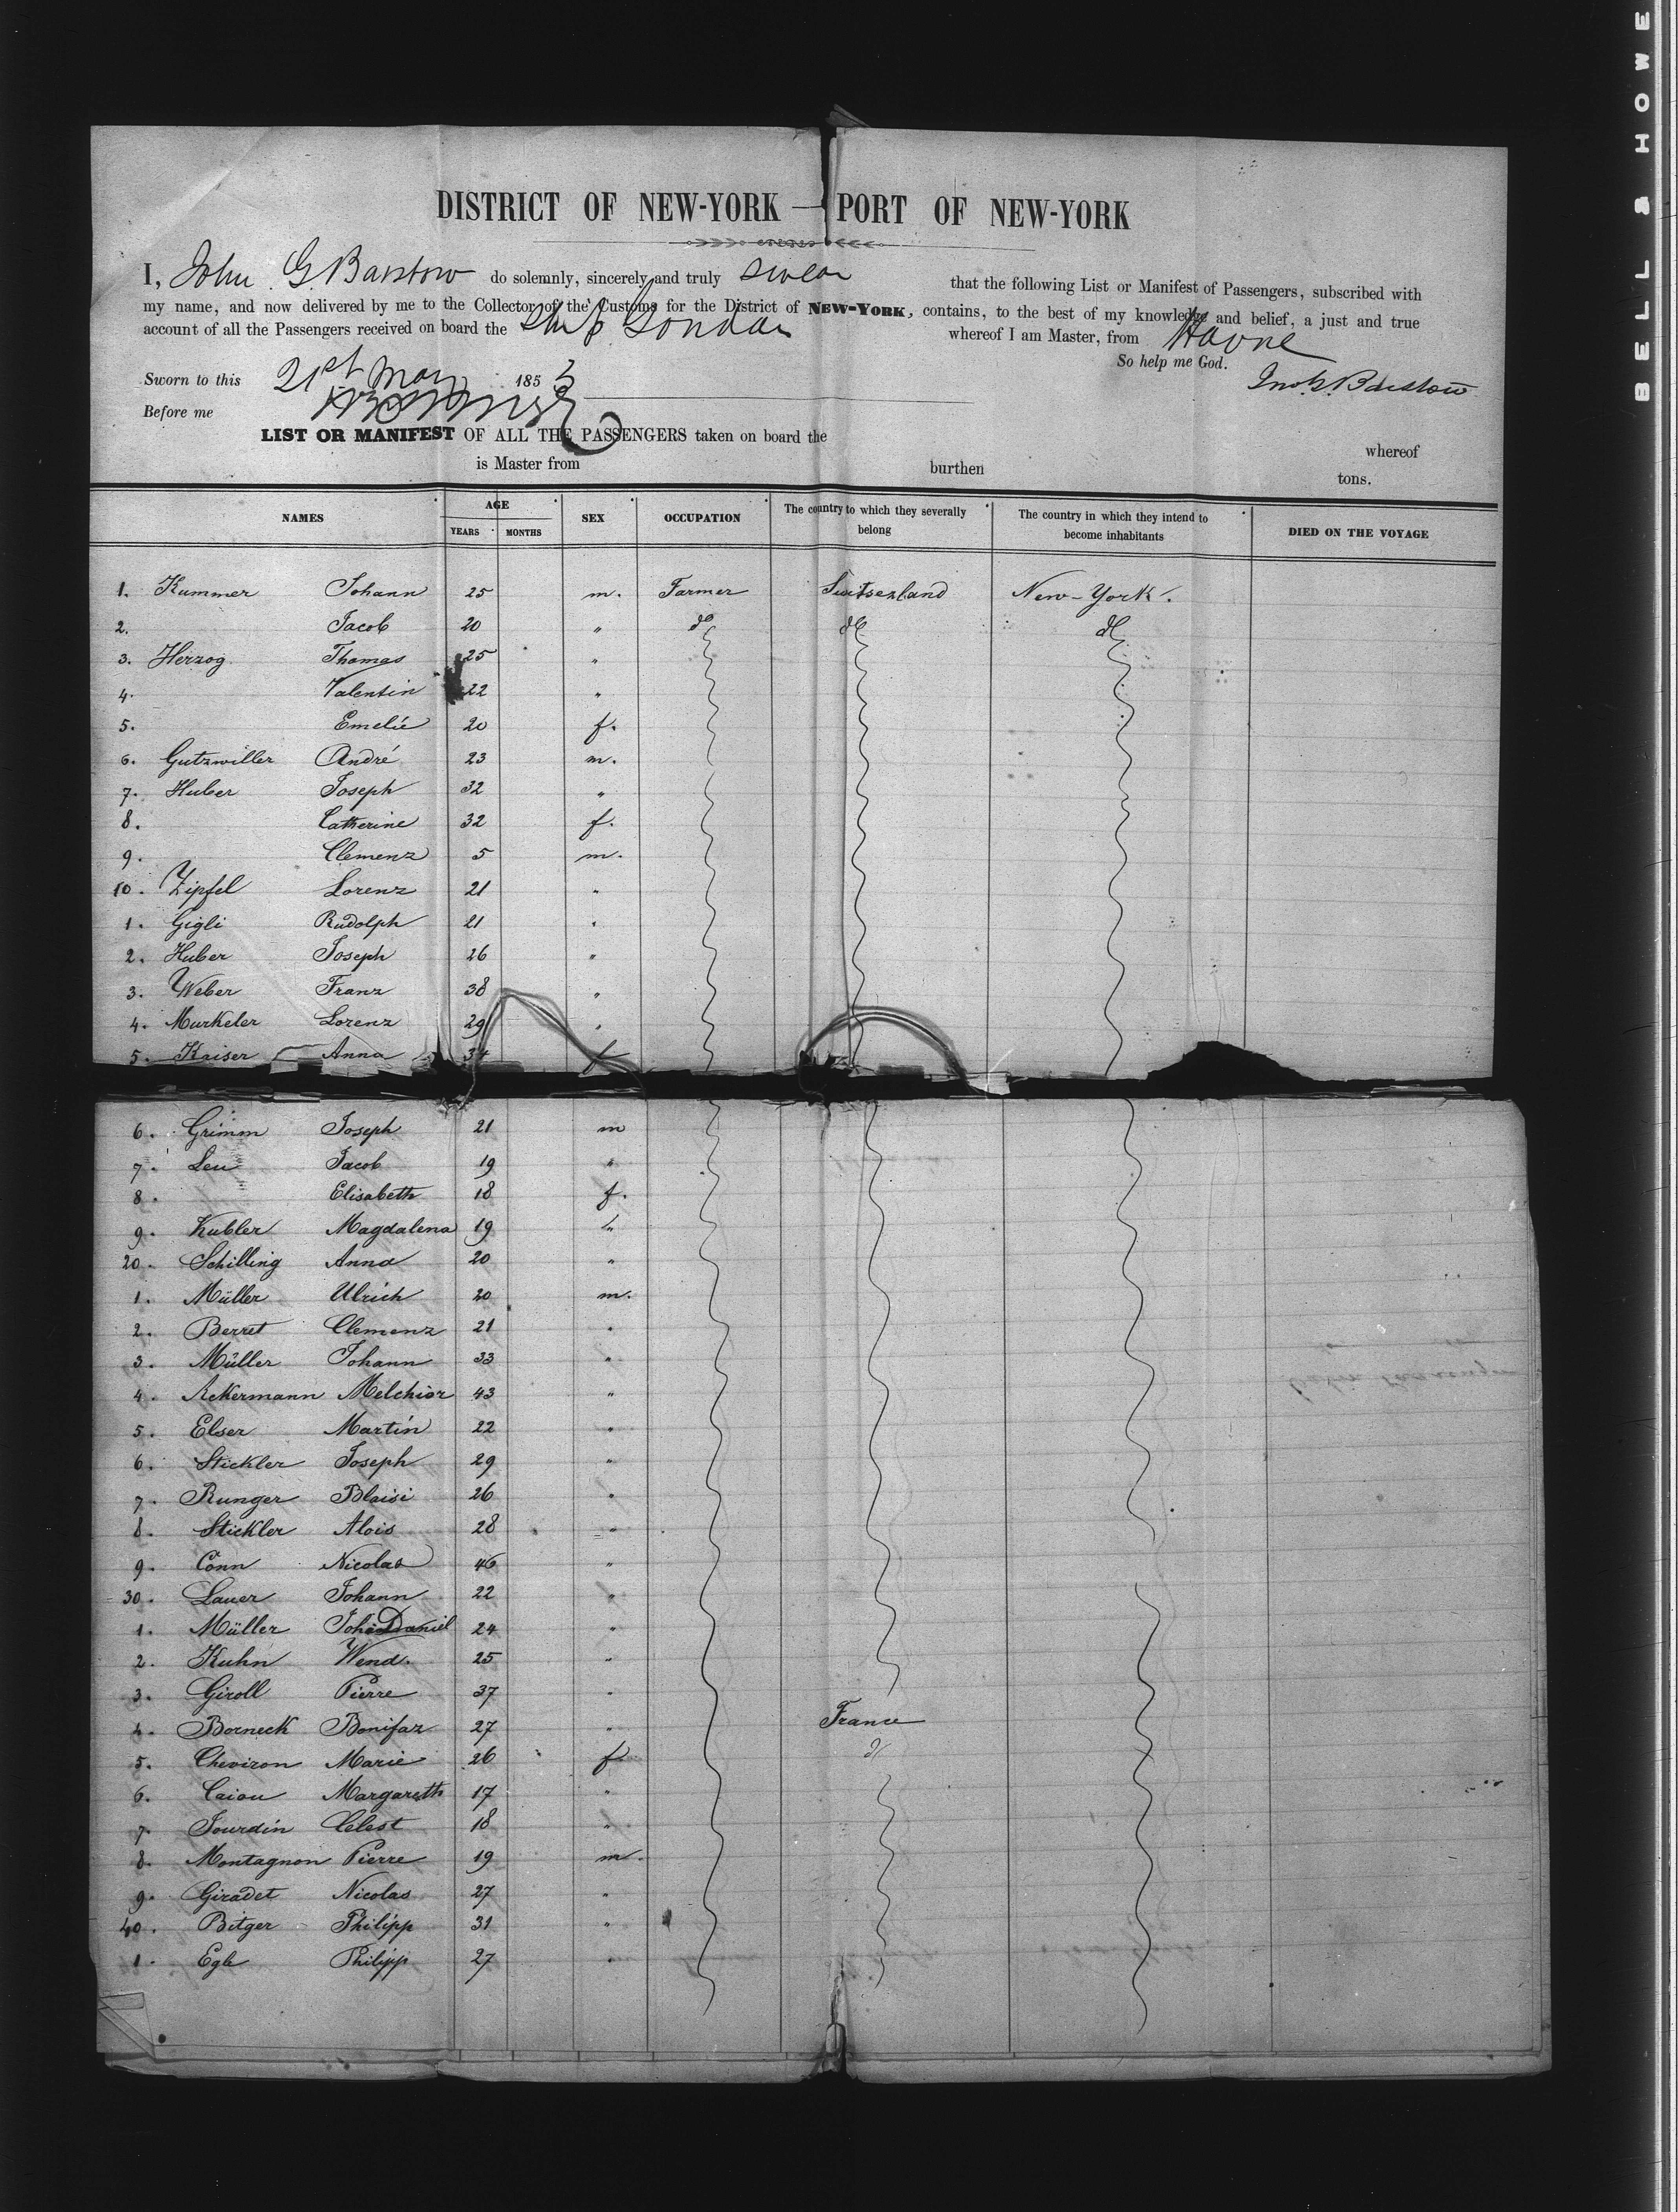 DISTRICT OF NEW-YORK — PORT OF NEW-YORK
I, John G. Barstow do solemnly, sincerely and truly swear that the following List or Manifest of Passengers, subscribed with
my name, and now delivered by me to the Collector of the Customs for the District of NEW-YORK, contains, to the best of my knowledge and belief, a just and true
account of all the Passengers received on board the Ship London whereof I am Master, from Havre
So help me God.
Sworn to this 21st May 1853 Jno. G. Barstow
Before me
LIST OR MANIFEST OF ALL THE PASSENGERS taken on board the whereof
is Master from burthen tons.
NAMES AGE YEARS MONTHS SEX OCCUPATION The country to which they severally belong The country in which they intend to become inhabitants DIED ON THE VOYAGE
1. Kummer Johann 25 m. Farmer Switserland New-York.
2. Jacob 20 " do do do
3. Herzog Thomas 25 "
4. Valentin 22 "
5. Emelie 20 f.
6. Gutzwiller André 23 m.
7. Huber Joseph 32 "
8. Catherine 32 f.
9. Clemenz 5 m.
10. Zipfel Lorenz 21 "
1. Gigli Rudolph 21 "
2. Huber Joseph 26 "
3. Weber Franz 38 "
4. Murkeler Lorenz 29 "
5. Kaiser Anna 34 f
6. Grimm Joseph 21 m
7. Leu Jacob 19 "
8. Elisabeth 18 f.
9. Kubler Magdalena 19 "
20. Schilling Anna 20 "
1. Müller Ulrich 20 m.
2. Berret Clemenz 21 "
3. Müller Johann 33 "
4. Ackermann Melchior 43 "
5. Elser Martin 22 "
6. Stickler Joseph 29 "
7. Runger Blaisi 26 "
8. Stickler Alois 28 "
9. Conn Nicolas 46 "
30. Lauer Johann 22 "
1. Müller Joh Daniel 24 "
2. Kuhn Wend. 25 "
3. Giroll Pierre 37 "
4. Borneck Bonifaz 27 " France
5. Cheviron Marie 26 f. d
6. Caiou Margareth 17 "
7. Jourdin Celest 18 "
8. Montagnon Pierre 19 m.
9. Giradet Nicolas 27 "
40. Bitger Philipp 31 "
1. Egle Philipp 27 "
BELL & HOWE